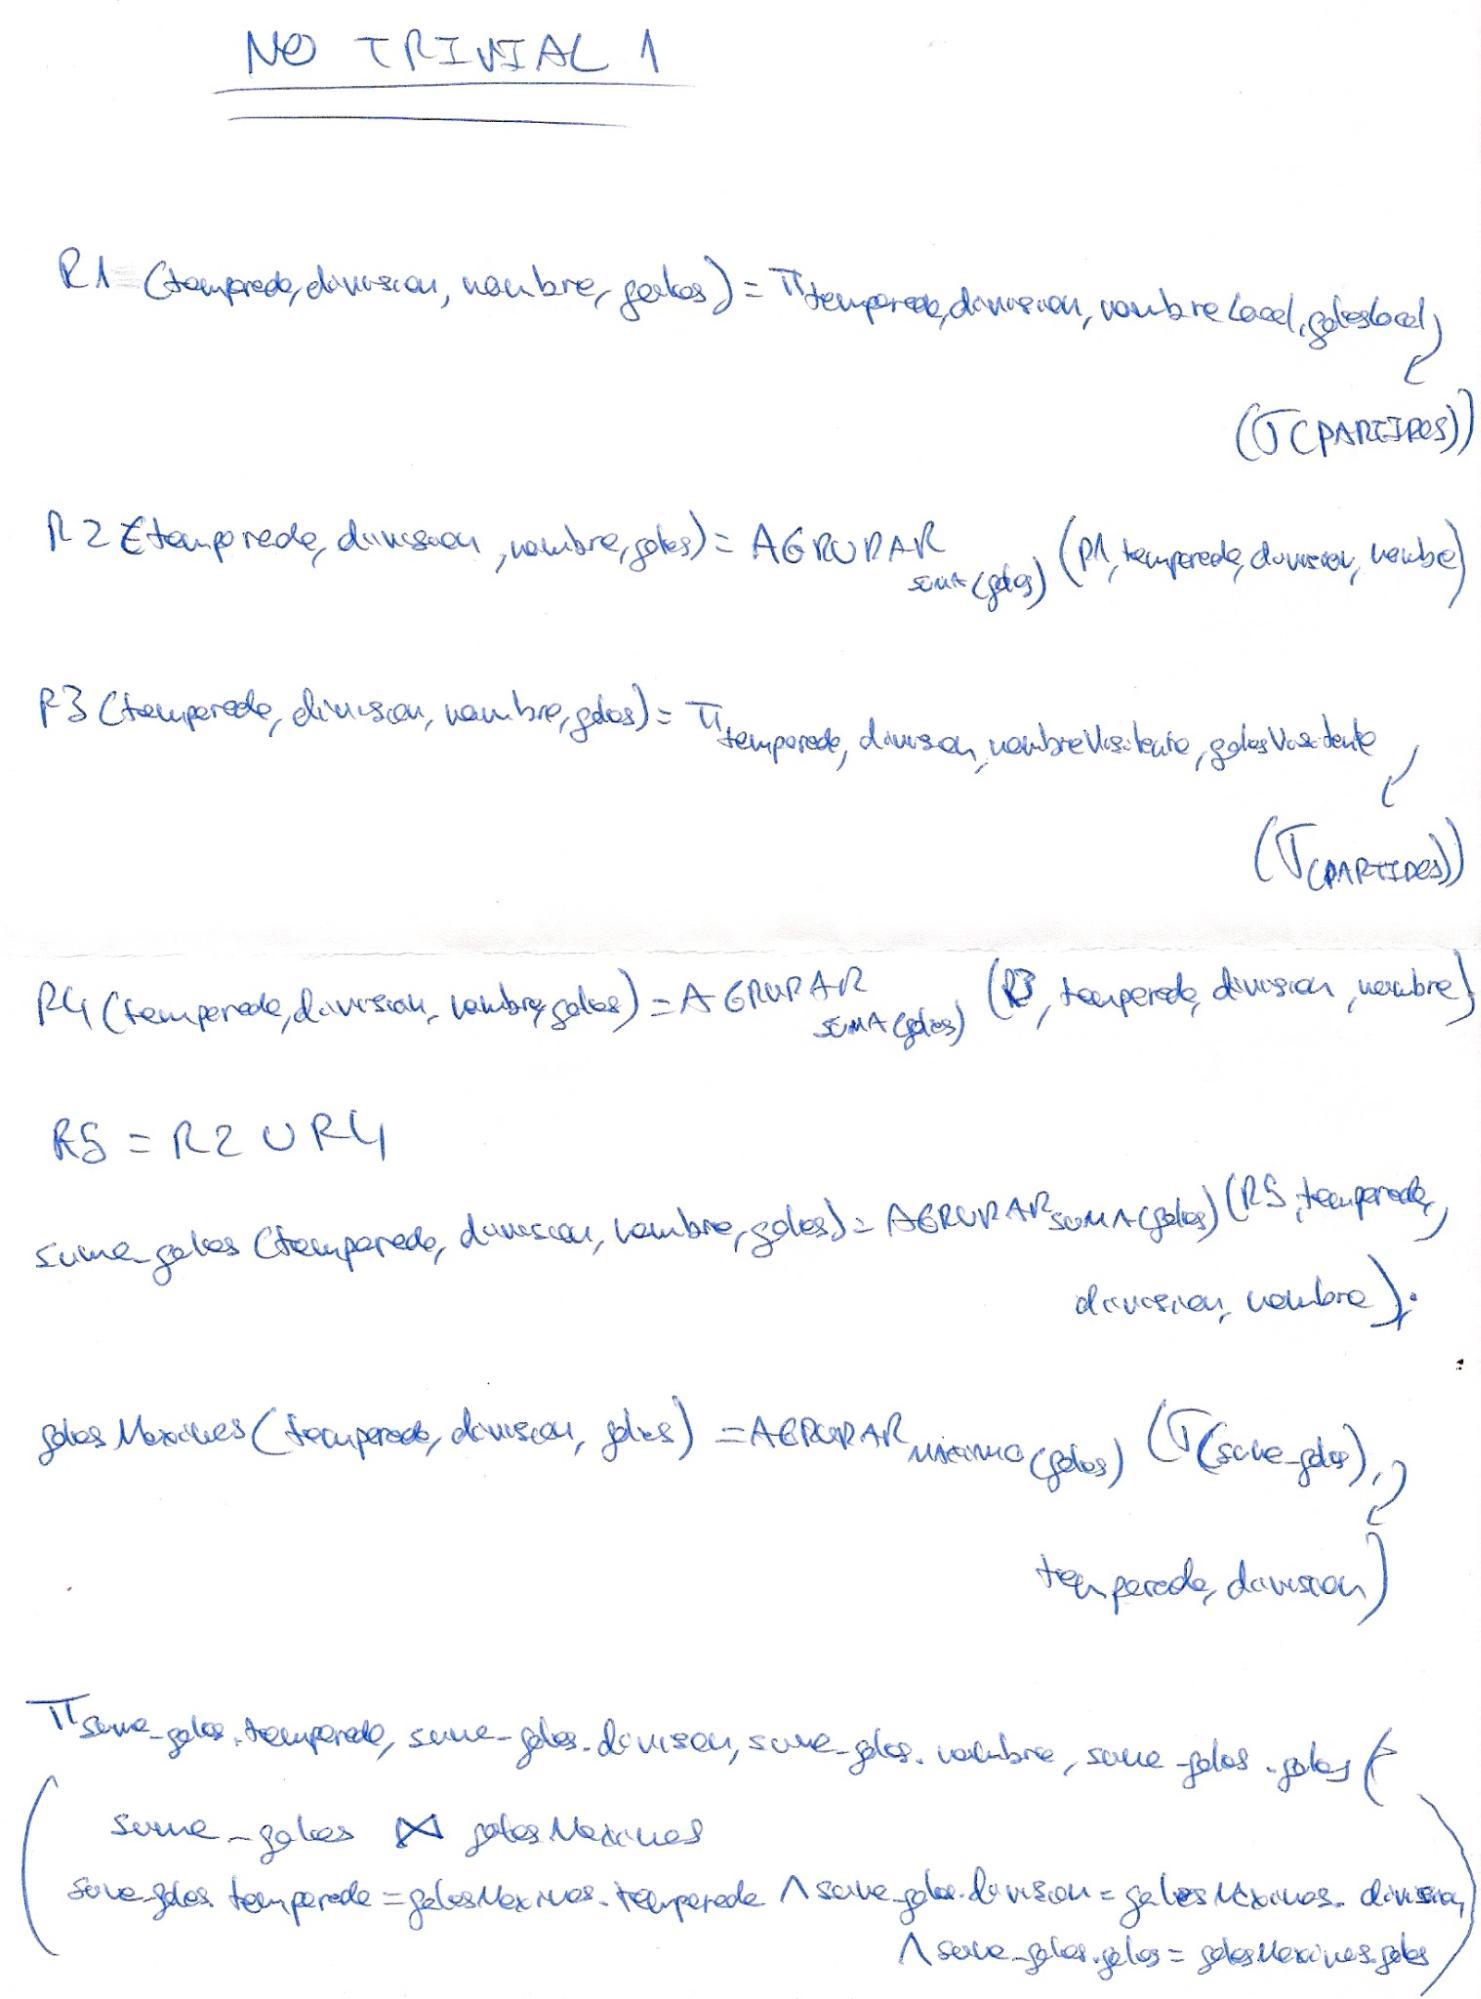 NO TRIVIAL 1
R1 (temporada, division, nombre, goles) = π temporada, division, nombreLocal, golesLocal
(σ(PARTIDOS))
R2 (temporada, division, nombre, goles) = AGRUPAR SUMA(goles) (R1, temporada, division, nombre)
R3 (temporada, division, nombre, goles) = π temporada, division, nombreVisitante, golesVisitante
(σ(PARTIDOS))
R4 (temporada, division, nombre, goles) = AGRUPAR SUMA(goles) (R3, temporada, division, nombre)
R5 = R2 ∪ R4
suma_goles (temporada, division, nombre, goles) = AGRUPAR SUMA(goles) (R5, temporada,
division, nombre);
golesMaximos (temporada, division, goles) = AGRUPAR MAXIMO(goles) (σ(suma_goles),
temporada, division)
π suma_goles.temporada, suma_goles.division, suma_goles.nombre, suma_goles.goles (
suma_goles ⋈ golesMaximos
suma_goles.temporada = golesMaximos.temporada ∧ suma_goles.division = golesMaximos.division
∧ suma_goles.goles = golesMaximos.goles)